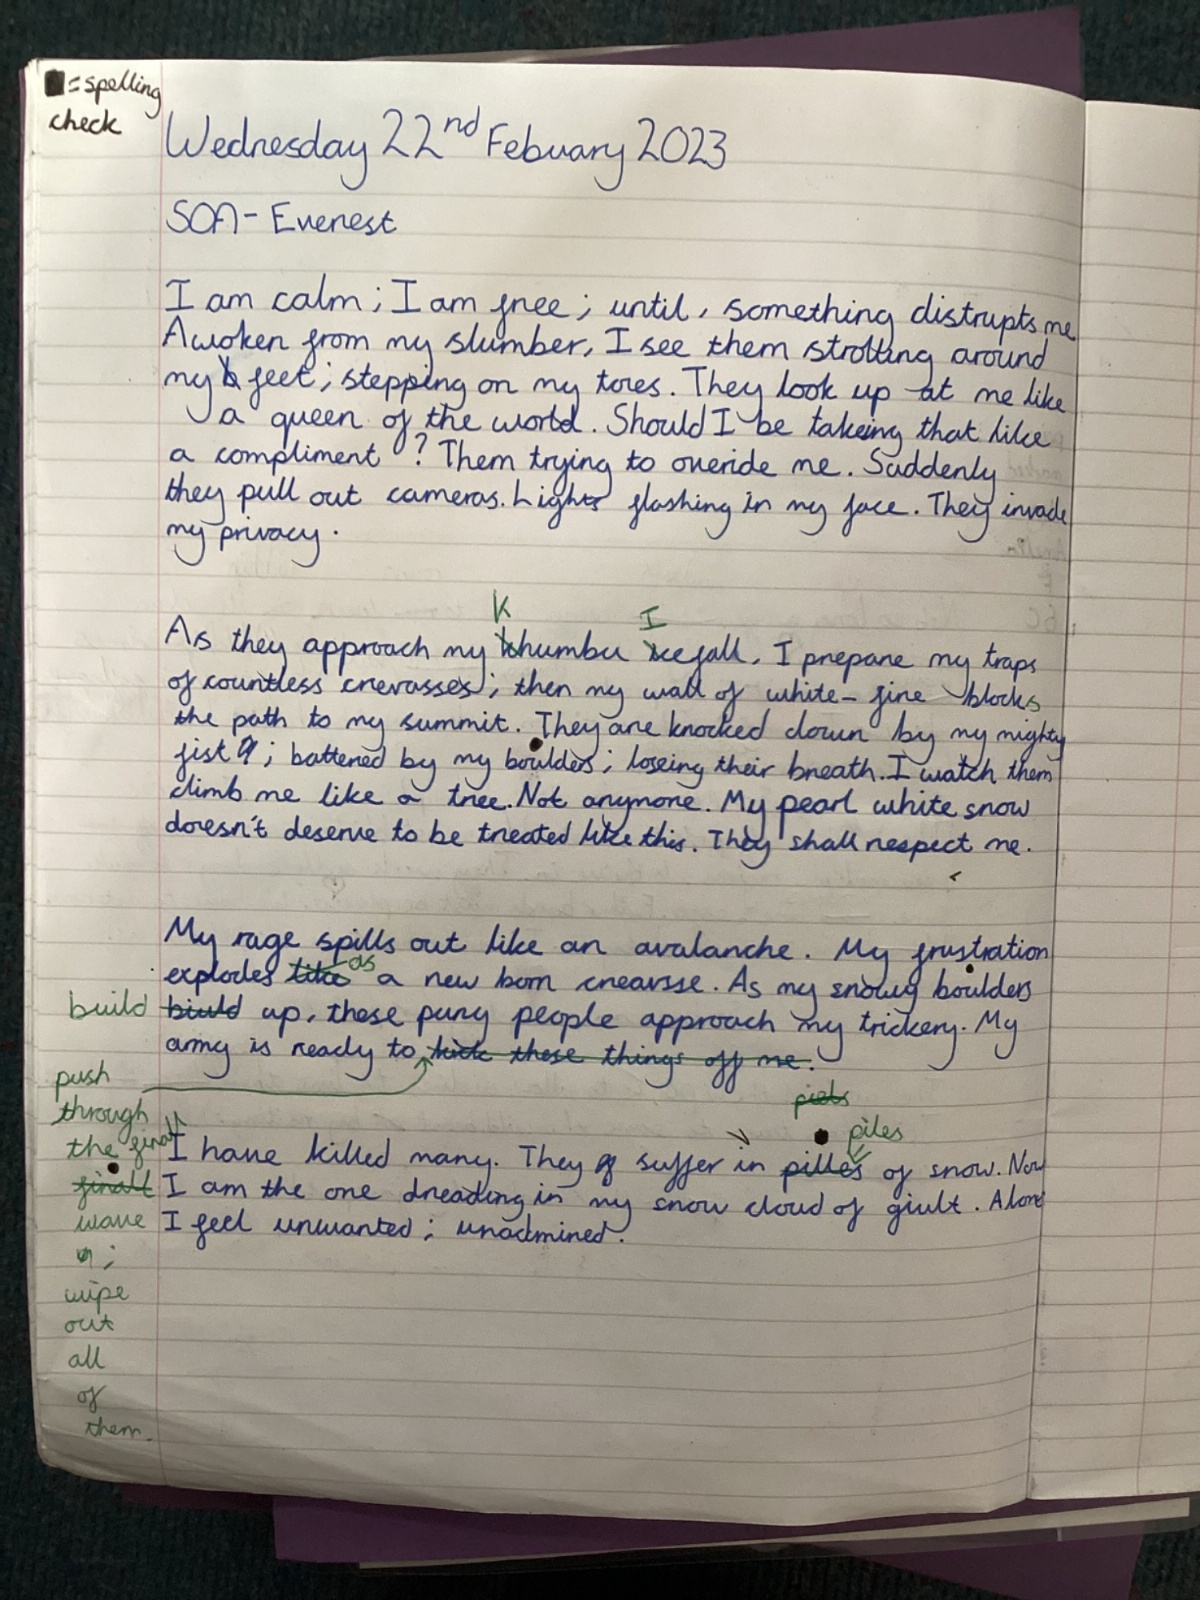 ■ = spelling
check
Wednesday 22nd Febuary 2023
SOA - Everest
I am calm; I am free; until, something distrupts me.
Awoken from my slumber, I see them strolling around
my feet; stepping on my toes. They look up at me like
a queen of the world. Should I be takeing that like
a compliment? Them trying to overide me. Suddenly
they pull out cameras. Lights flashing in my face. They invade
my privacy.
As they approach my Khumbu Icefall, I prepare my traps
of countless crevasses; then my wall of white-fire blocks
the path to my summit. They are knocked down by my mighty
fist; battered by my boulders; loseing their breath. I watch them
climb me like a tree. Not anymore. My pearl white snow
doesn't deserve to be treated like this. They shall respect me.
My rage spills out like an avalanche. My frustration
explodes like as a new born crearsse. As my snowy boulders
build biuld up, these puny people approach my trickery. My
army is ready to kick these things off me.
push
through
the final
finall
wave
;
wipe
out
all
of
them.
piels
piles
I have killed many. They suffer in pilles of snow. Now
I am the one dreading in my snow cloud of giult. Alone
I feel unwanted; unadmired.